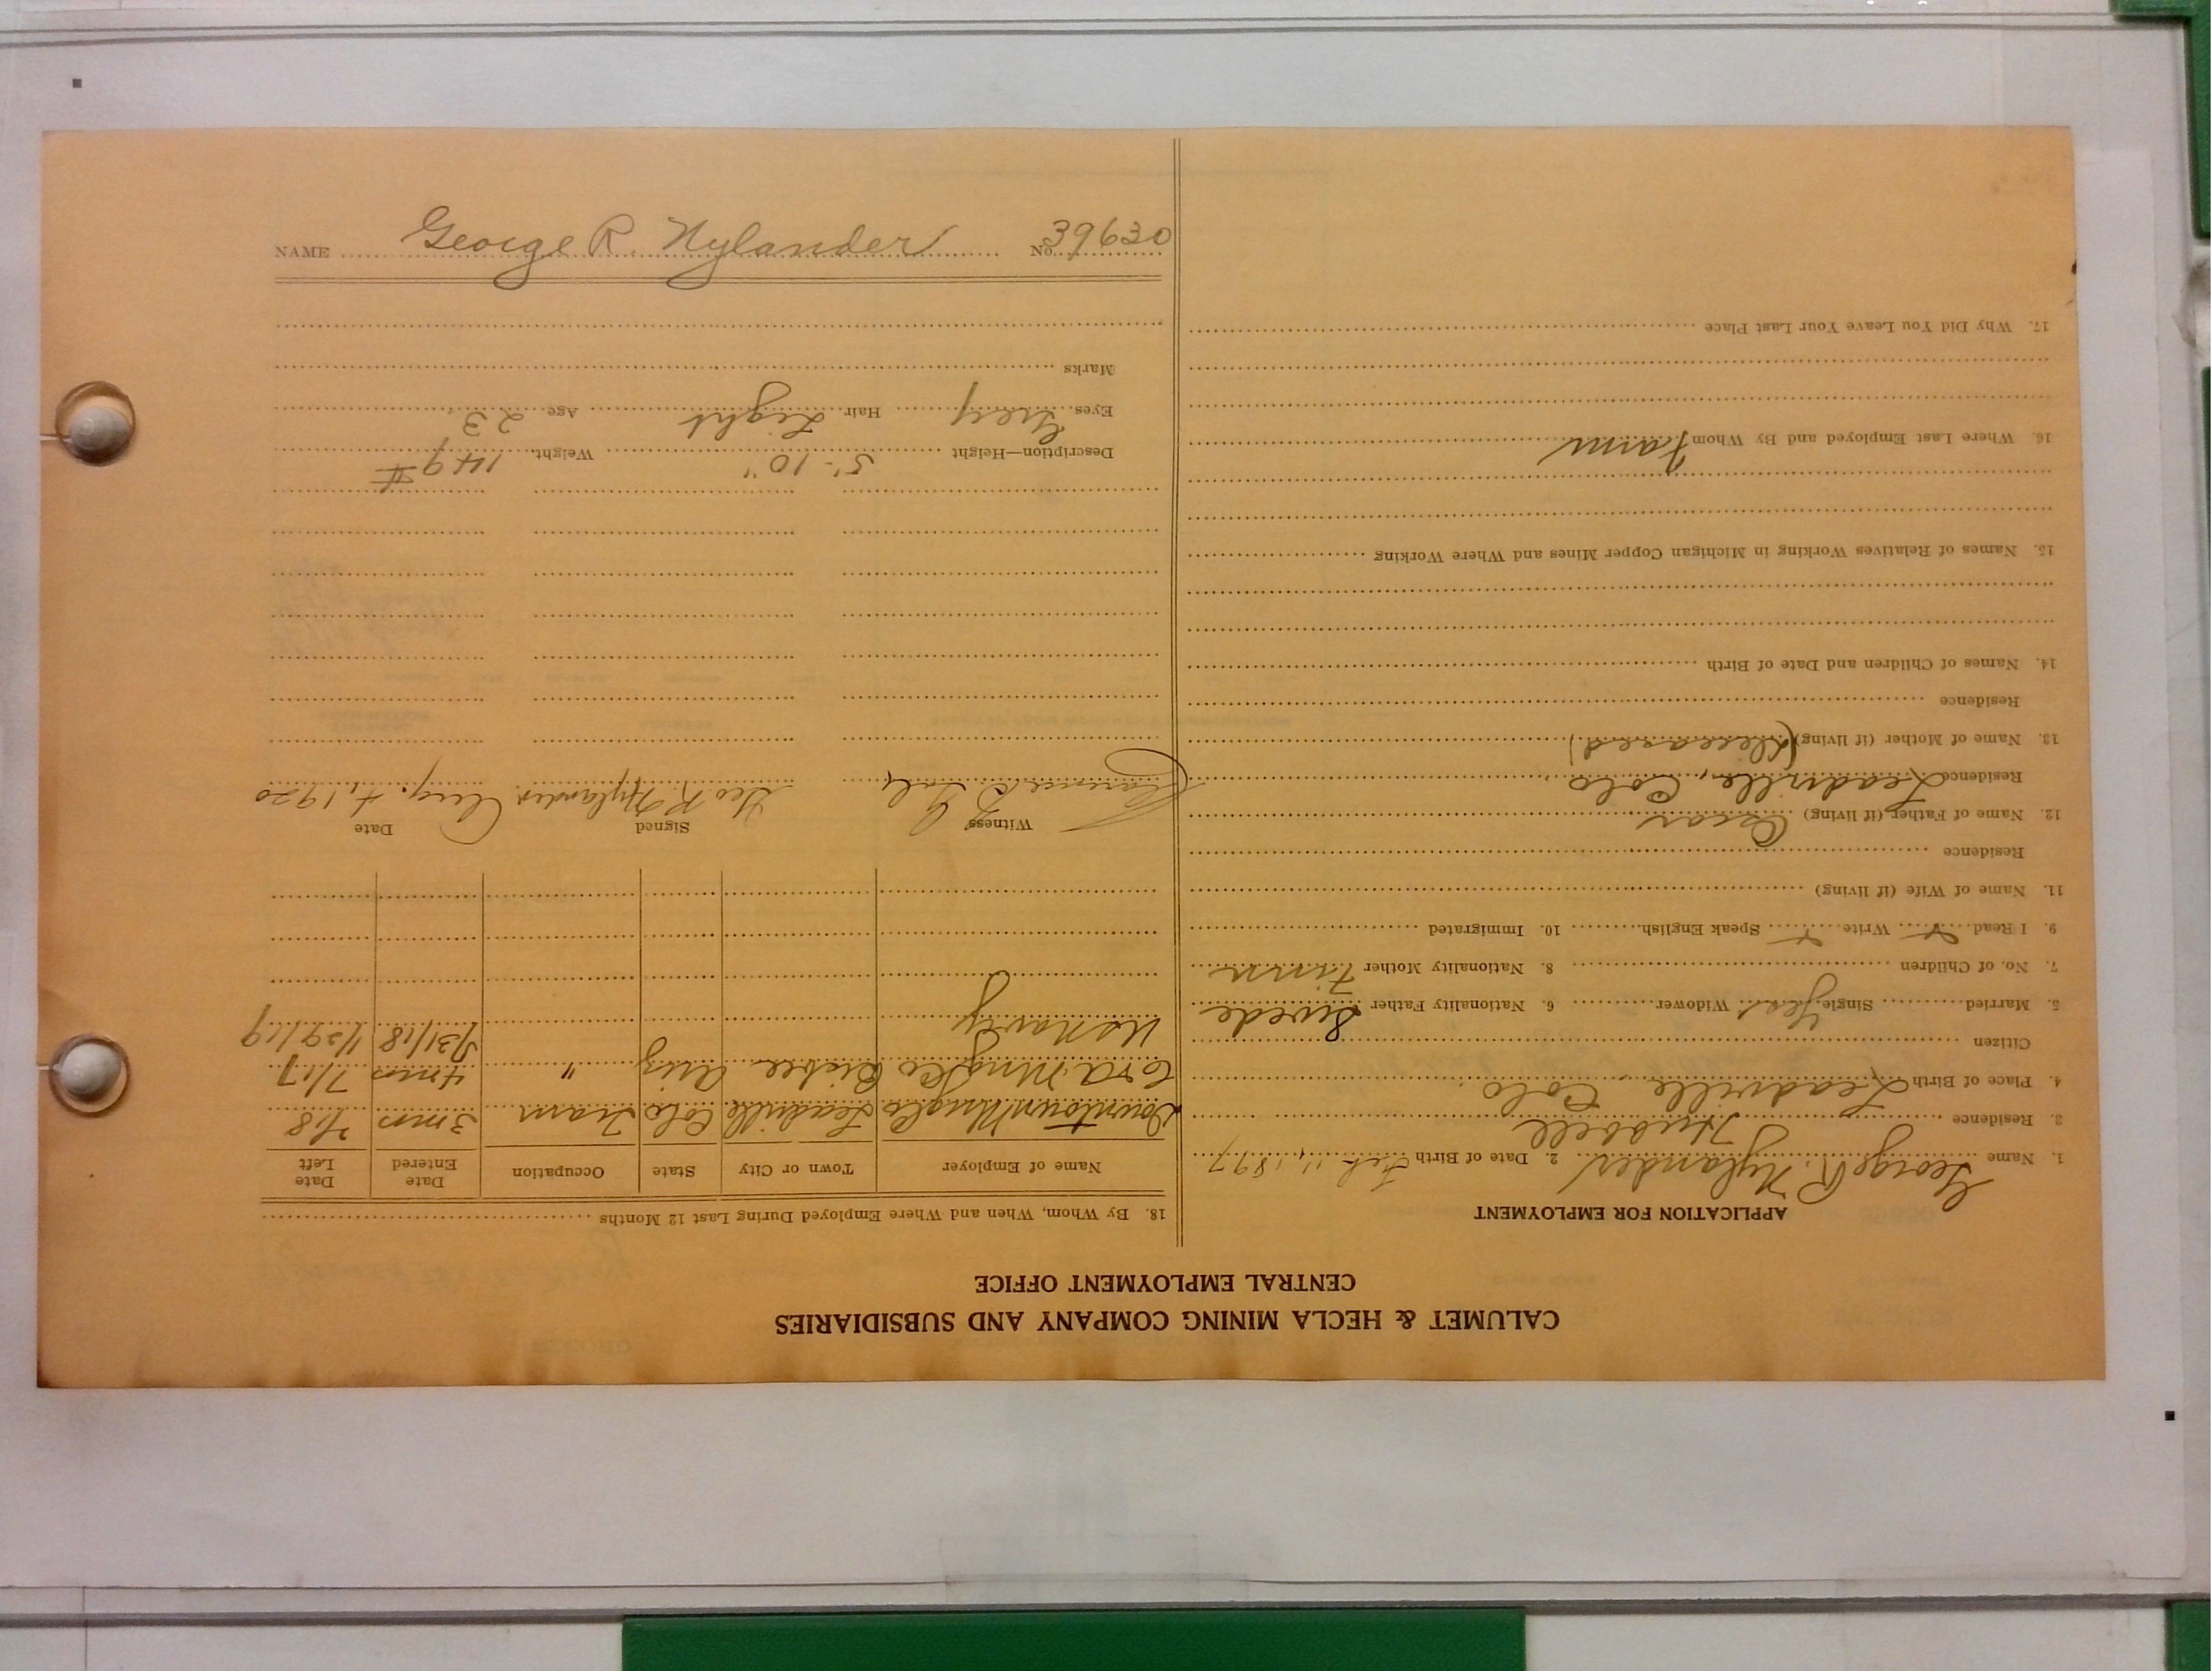 CALUMET & HECLA MINING COMPANY AND SUBSIDIARIES
CENTRAL EMPLOYMENT OFFICE
APPLICATION FOR EMPLOYMENT
1. Name George R. Nylander 2. Date of Birth Feb 11, 1897
3. Residence Hubbell
4. Place of Birth Leadville, Colo.
Citizen
5. Married Single Yes Widower 6. Nationality Father Swede
7. No. of Children 8. Nationality Mother Finn
9. I Read Write Speak English 10. Immigrated
11. Name of Wife (if living)
Residence
12. Name of Father (if living) Oscar
Residence Leadville, Colo
13. Name of Mother (if living) (Deceased)
Residence
14. Names of Children and Date of Birth
15. Names of Relatives Working in Michigan Copper Mines and Where Working
16. Where Last Employed and By Whom Farm
17. Why Did You Leave Your Last Place
18. By Whom, When and Where Employed During Last 12 Months
Name of Employer Town or City State Occupation Date Entered Date Left
Downtown Mng Co Leadville Colo Tram 3 mos 2/18
C & A Mng Co Bisbee Ariz " 4 mos 7/17
US Navy 5/31/18 1/29/19
Witness Signed Date
Clarence Geo R. Nylander Aug. 4, 1920
Description—Height 5'-10" Weight 149 #
Eyes Grey Hair Light Age 23
Marks
NAME George R. Nylander No. 39630